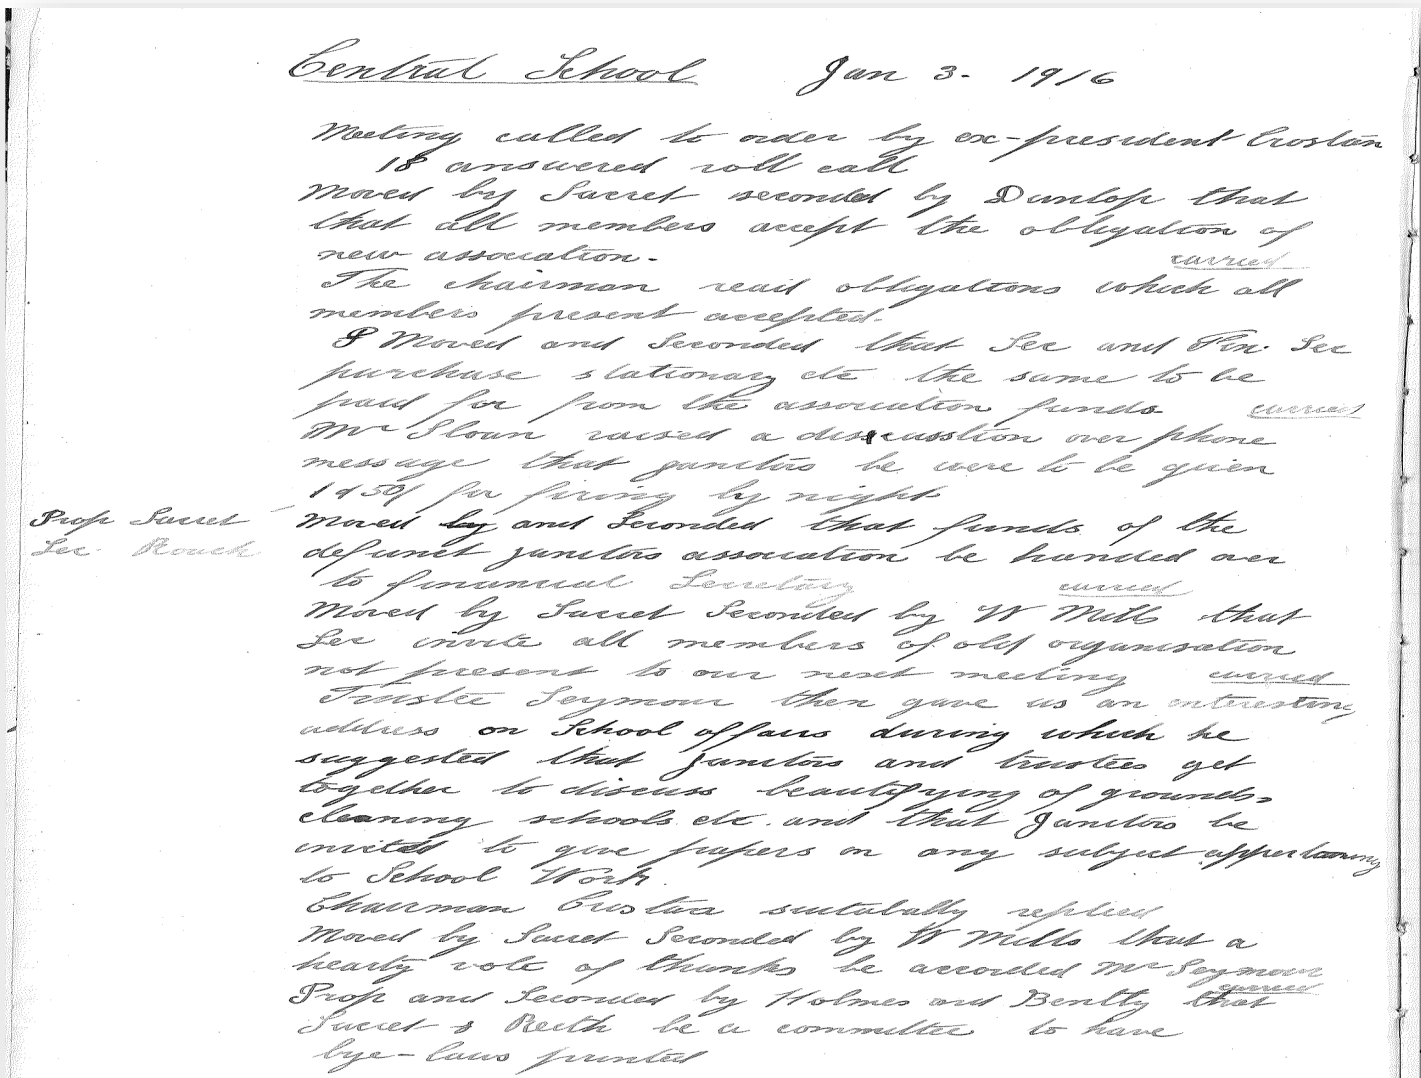 Central School Jan 3. 1916
Meeting called to order by ex-president Croston
18 answered roll call
Moved by Sacret seconded by Dunlop that
that all members accept the obligation of
new association. carried
The chairman read obligations which all
members present accepted.
Moved and Seconded that Sec and Fin. Sec
purchase stationary etc the same to be
paid for from the association funds carried
Mr Sloan raised a discussion over phone
message that janitors be were to be given
for firing by night
Prop Sacret
Sec. Roach
Moved by and Seconded that funds of the
defunct janitors association be handed over
to financial Secretary carried
Moved by Sacret Seconded by W Mills that
Sec invite all members of old organisation
not present to our next meeting carried
Trustee Seymour then gave us an interesting
address on School affairs during which he
suggested that Janitors and trustees get
together to discuss beautifying of grounds,
cleaning schools etc. and that Janitors be
invited to give papers on any subject appertaining
to School Work.
Chairman suitabally replied
Moved by Sacret Seconded by W Mills that a
hearty vote of thanks be accorded Mr Seymour
carried
Prop and Seconded by Holmes and Bentty that
Sacret & be a committee to have
bye-laws printed